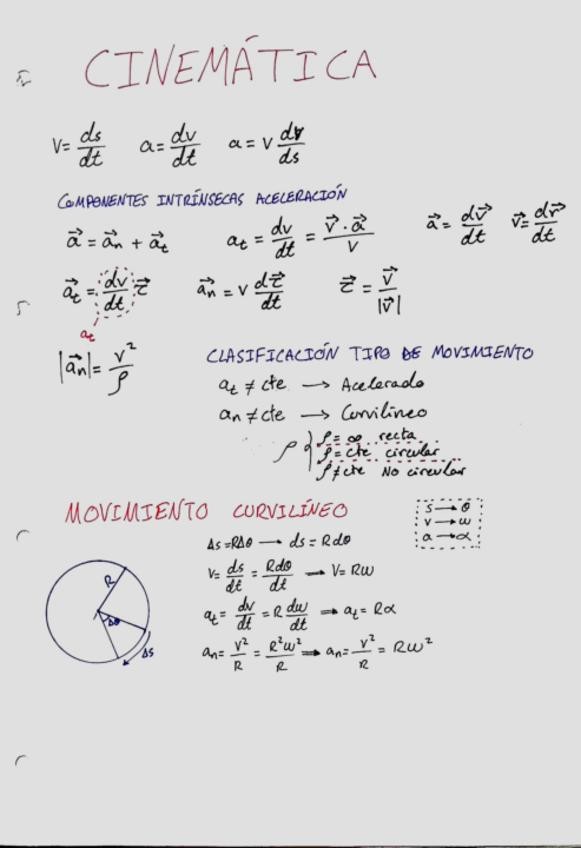 CINEMÁTICA
v = ds/dt   a = dv/dt   a = v dv/ds
COMPONENTES INTRÍNSECAS ACELERACIÓN
a⃗ = a⃗n + a⃗t   at = dv/dt = v⃗ · a⃗ / v   a⃗ = dv⃗/dt   v⃗ = dr⃗/dt
a⃗t = dv/dt τ⃗   a⃗n = v dτ⃗/dt   τ⃗ = v⃗/|v⃗|
at
|a⃗n| = v²/ρ
CLASIFICACIÓN TIPO DE MOVIMIENTO
at ≠ cte → Acelerado
an ≠ cte → Curvilíneo
ρ { ρ = ∞ recta
ρ = cte circular
ρ ≠ cte No circular
MOVIMIENTO CURVILÍNEO
s → θ
v → ω
a → α
Δs = RΔθ → ds = Rdθ
v = ds/dt = Rdθ/dt → v = Rω
at = dv/dt = R dω/dt → at = Rα
an = v²/R = R²ω²/R → an = v²/R = Rω²
R
Δθ
Δs